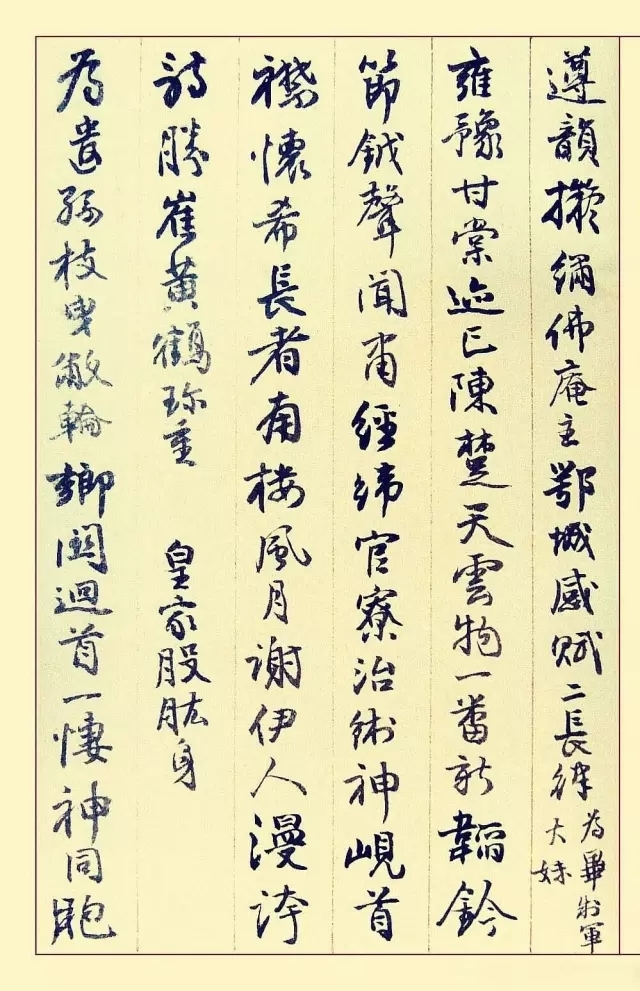 遵韻擬繡佛庵主鄂城感賦二長律
為畢制軍
大妹
雍豫甘棠迹已陳楚天雲物一番新韜鈐
節鉞聲聞肅經緯官寮治術神峴首
襟懷希長者南樓風月謝伊人漫誇
詩勝崔黃鶴珍重 皇家股肱身
為遺孫枝曳敝輪鄉關迴首一悽神同胞